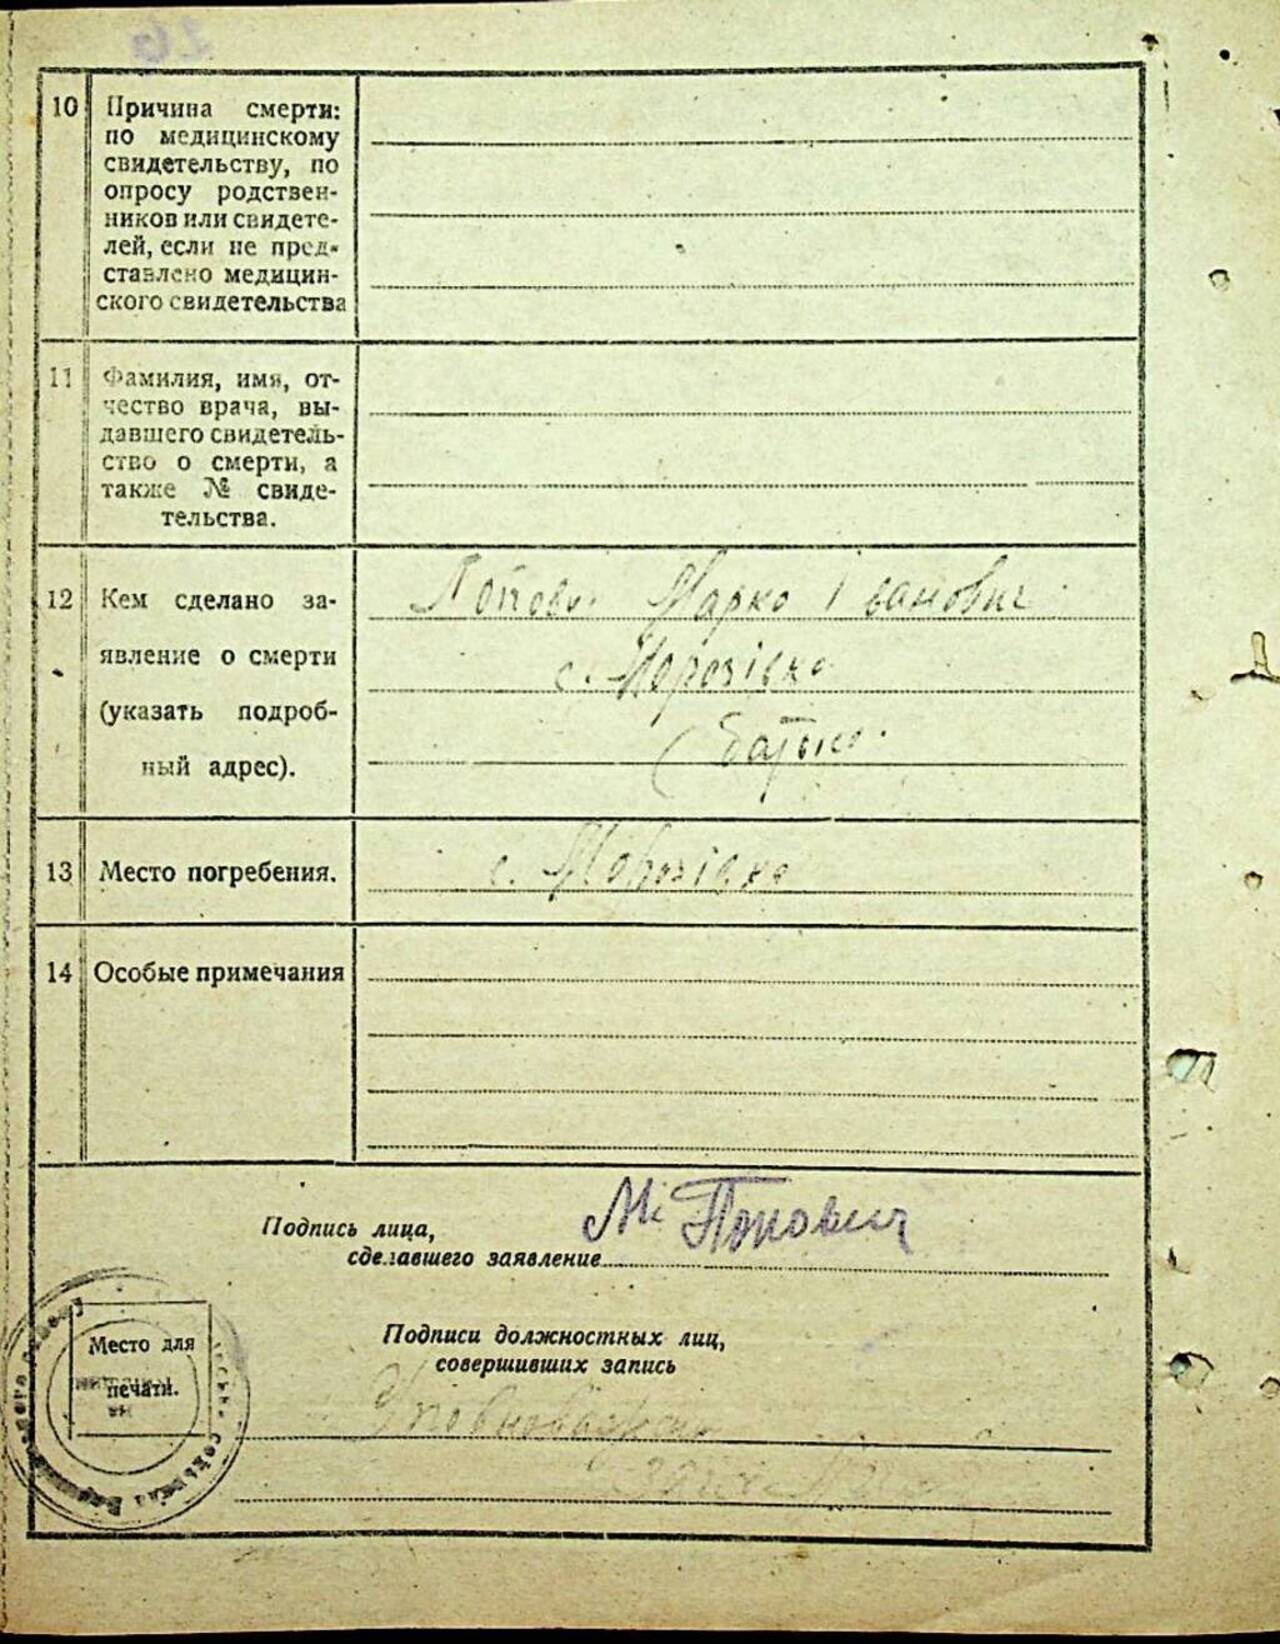 10 Причина смерти:
по медицинскому
свидетельству, по
опросу родствен-
ников или свидете-
лей, если не пред-
ставлено медицин-
ского свидетельства
11 Фамилия, имя, от-
чество врача, вы-
давшего свидетель-
ство о смерти, а
также № свиде-
тельства.
12 Кем сделано за-
явление о смерти
(указать подроб-
ный адрес).
Марко Іванович
с. Морозівка
(батько
13 Место погребения.
с. Морозівка
14 Особые примечания
Подпись лица,
сделавшего заявление
М. Попович
Место для
печати.
Подписи должностных лиц,
совершивших запись
Уповноважен